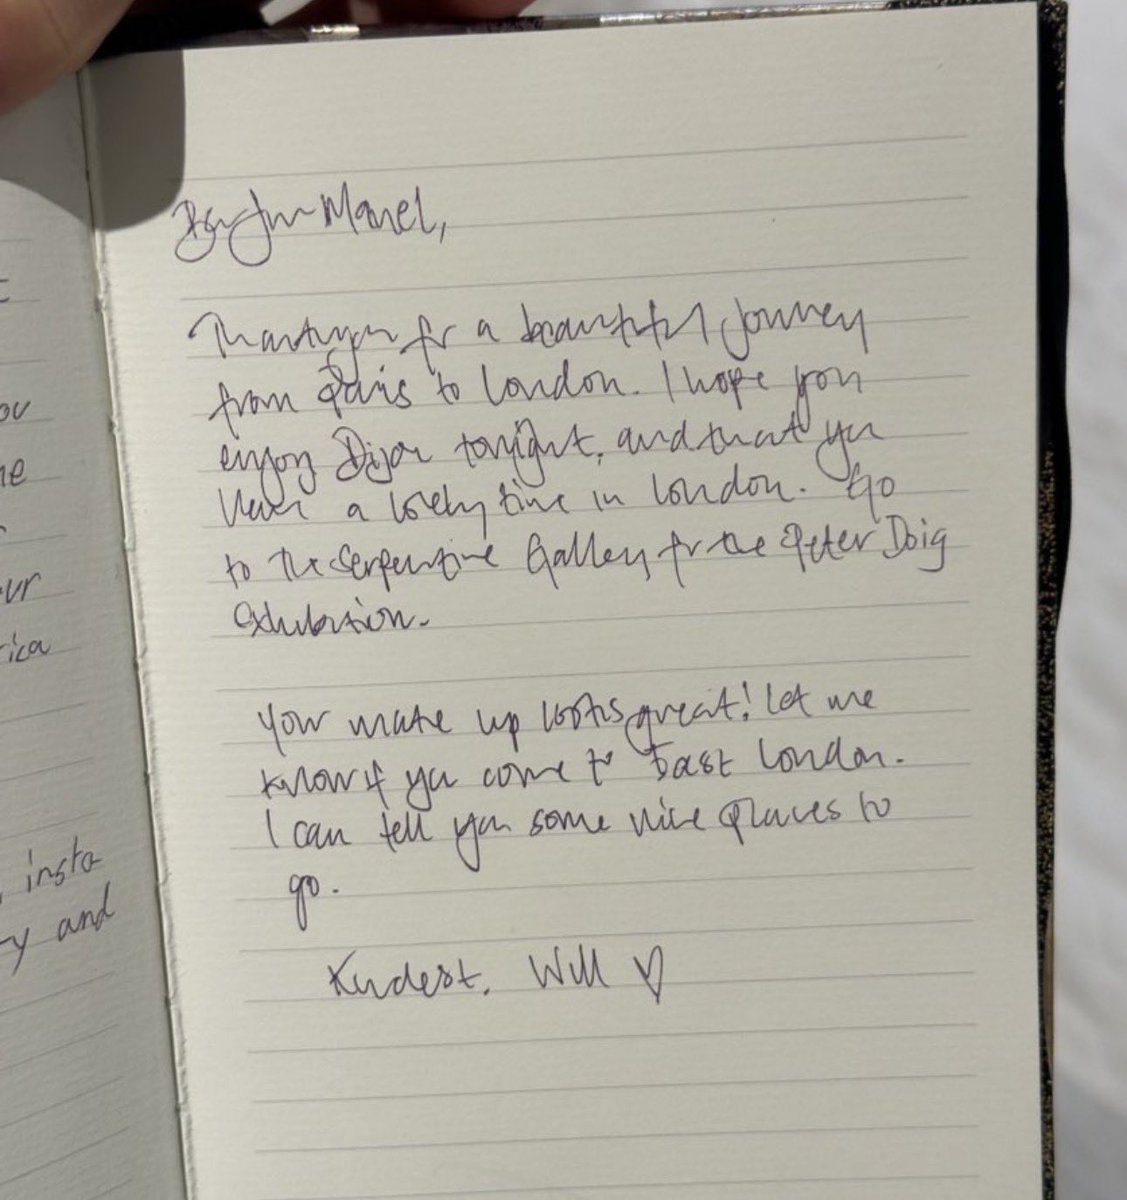 Manel,
Thankyou for a beautiful journey
from Paris to London. I hope you
enjoy tonight, and that you
have a lovely time in London. Go
to the Serpentine Gallery for the Peter Doig
exhibition.
Your make up looks great! Let me
know if you come to East London.
I can tell you some nice places to
go.
Kindest, Will ♡
ou
ur
rica
insta
y and